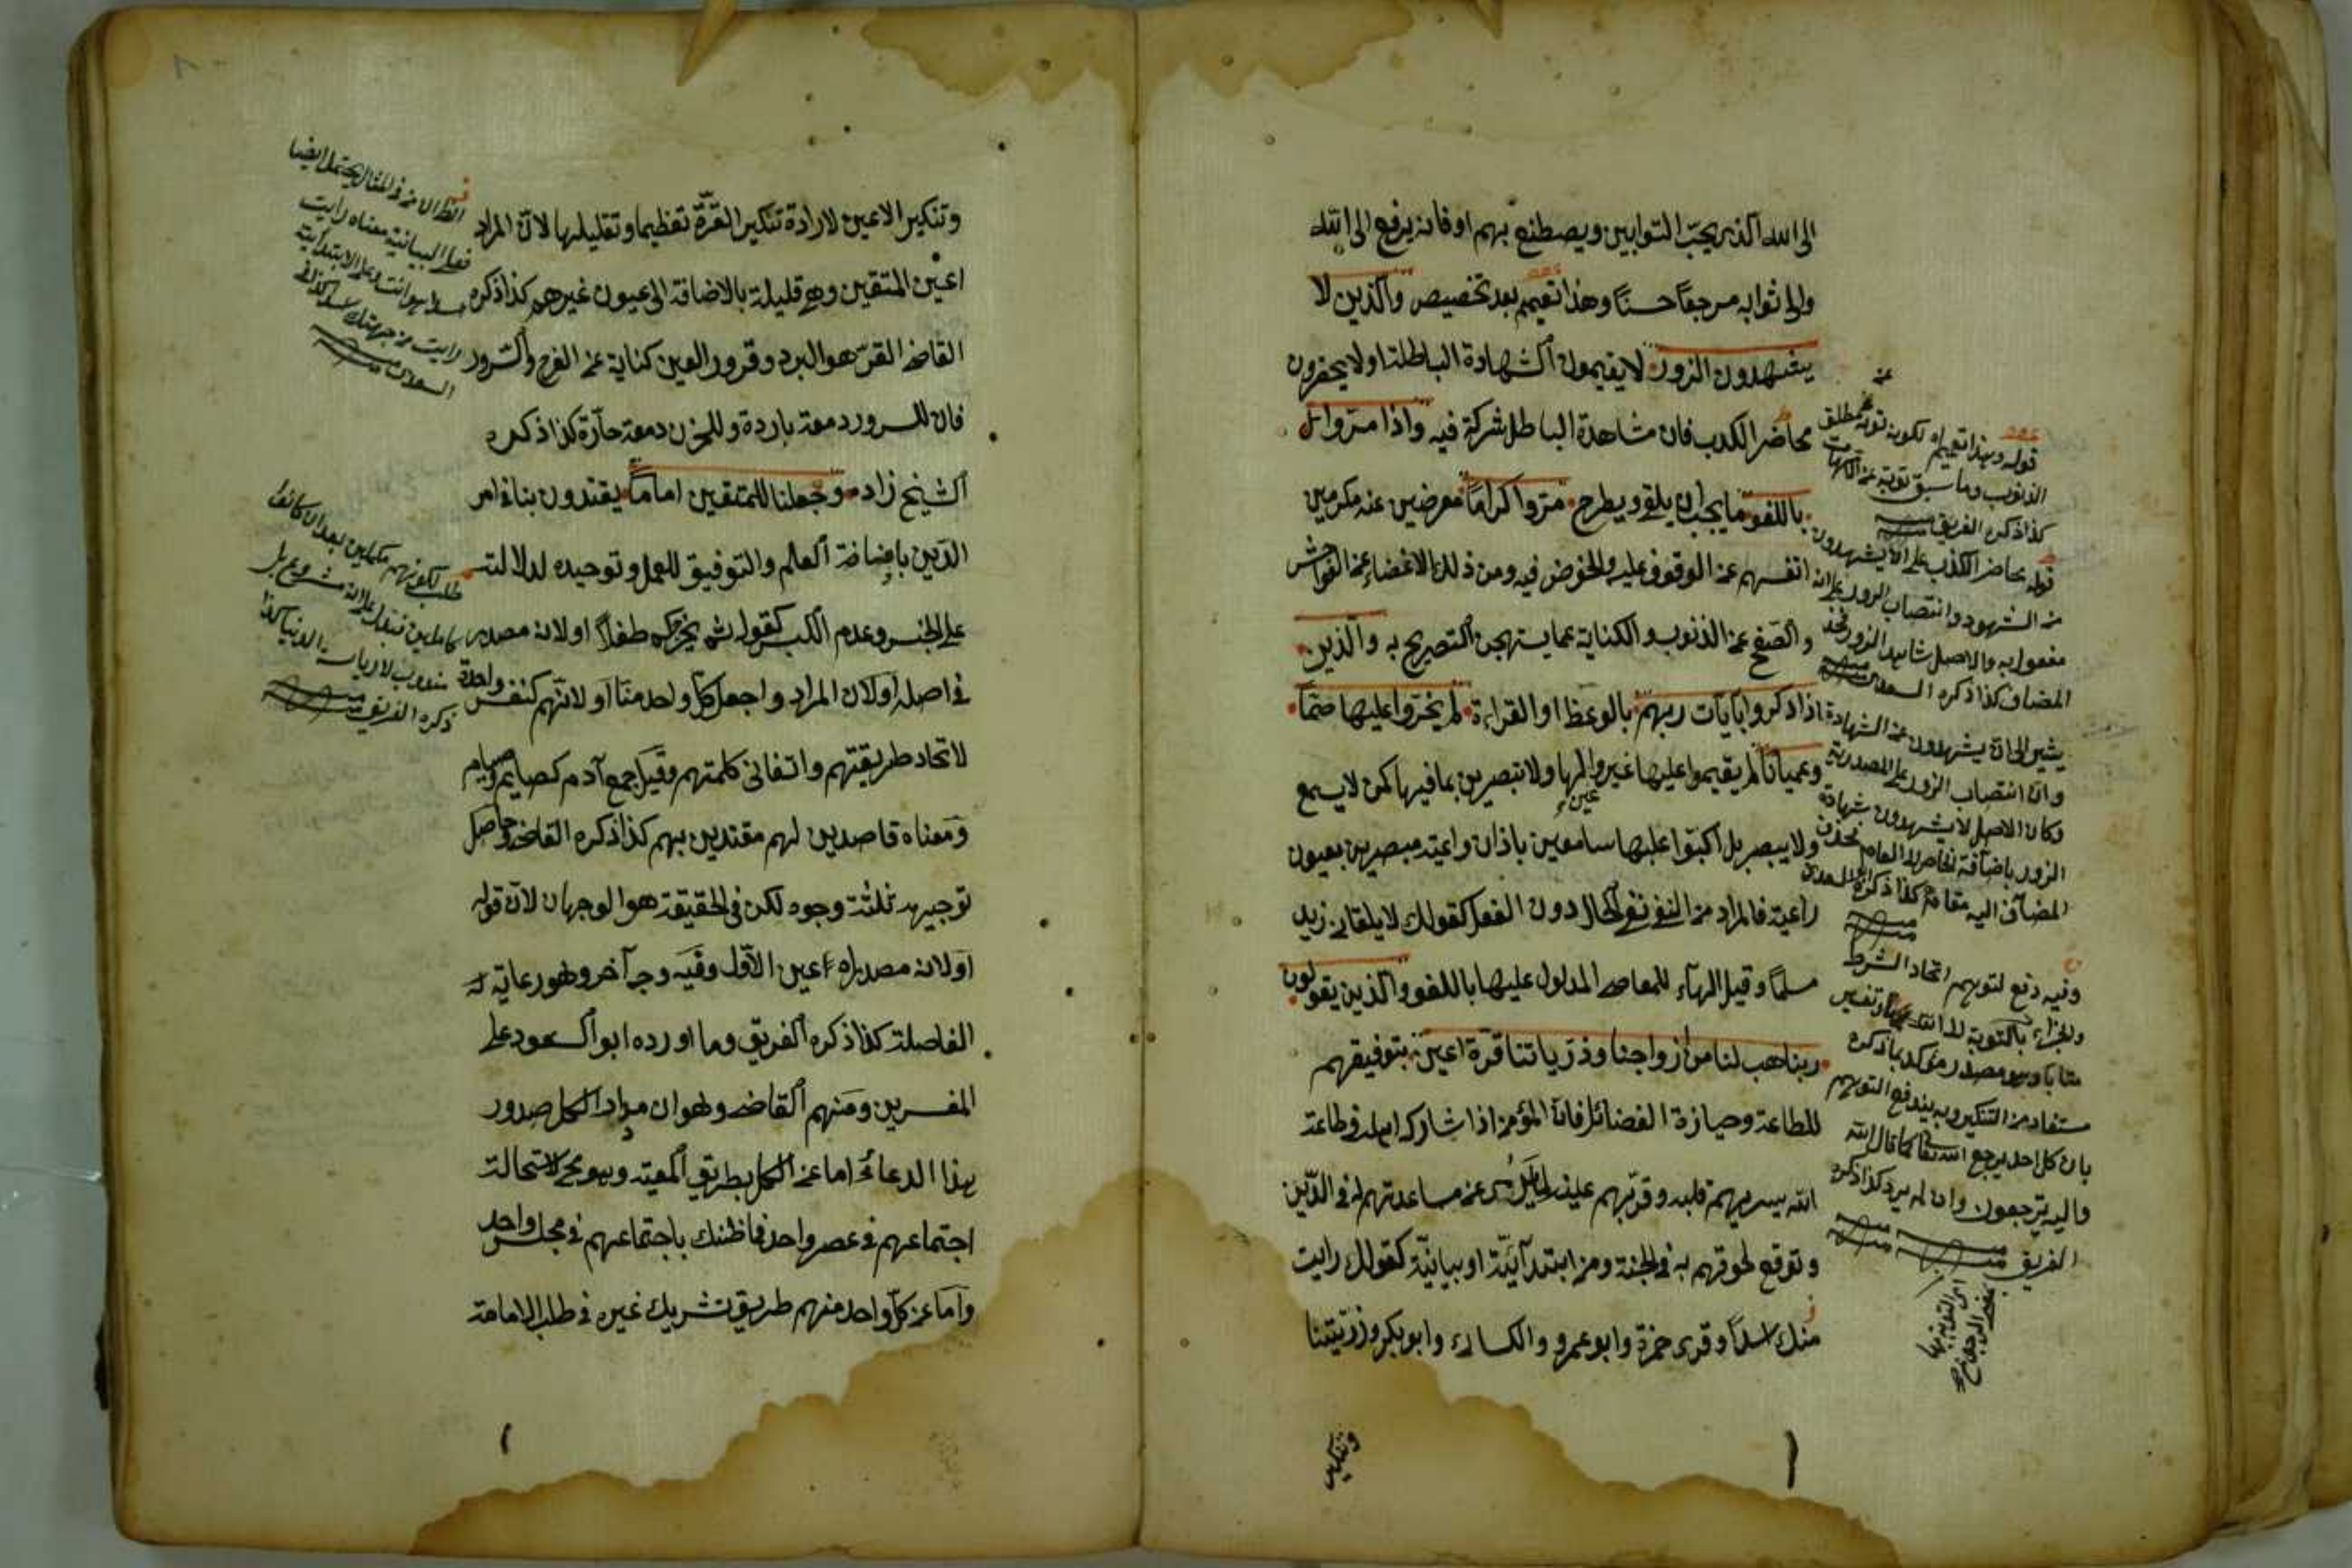 الى الله الذى يحبّ التوابين ويصطنع بهم او فانه يرفع الى الله
والى ثوابه مرجعاً حسناً وهذا تعميم بعد تخصيص والذين لا
يشهدون الزور لا يقيمون الشهادة الباطلة او لا يحضرون
محاضر الكذب فان مشاهدة الباطل شركة فيه واذا مرّوا
باللغو ما يجب ان يلغو ويطرح مرّوا كراماً معرضين عنه مكرمين
انفسهم عن الوقوف عليه والخوض فيه ومن ذلك الاغضاء عن الفواحش
والصفح عن الذنوب والكناية عما يستهجن التصريح به والذين
اذا ذكروا بآيات ربهم بالوعظ او القراءة لم يخرّوا عليها صمّاً
وعمياناً لم يقيموا عليها غير واعين لها ولا متبصرين بما فيها كمن لا يسمع
ولا يبصر بل اكبّوا عليها سامعين باذان واعية مبصرين بعيون
راعية فالمراد من النفى نفى الحال دون الفعل كقولك لا يلقانى زيد
مسلّماً وقيل الهآء للمعاصى المدلول عليها باللغو والذين يقولون
ربنا هب لنا من ازواجنا وذرّياتنا قرة اعين بتوفيقهم
للطاعة وحيازة الفضائل فان المؤمن اذا شاركه اهله فى طاعة
الله يسر بهم قلبه وقرّ بهم عينه لما يرى من مساعدتهم له فى الدّين
وتوقع لحوقهم به فى الجنة ومن ابتدآئيّة او بيانيّة كقولك رايت
منك اسداً وقرى حمزة وابو عمرو والكسائى وابو بكر وذريتنا
وتنكير
قوله وهذا تعميم لكونه توبة مطلق
الذنوب وما سبق توبة عن
كذا ذكره الفريق
قوله محاضر الكذب على ان يشهدون
من الشهود وانتصاب الزور على انه
مفعول به والاصل شاهد الزور فحذف
المضاف كذا ذكره السعدى
يشير الى ان يشهدون من الشهادة
وان انتصاب الزور على المصدرية
وكان الاصل لا يشهدون شهادة
الزور باضافة الخاص الى العام فحذف
المضاف اليه مقامه كذا ذكره السعدى
وفيه دفع لتوهم اتحاد الشرط
متابا وهو مصدر مؤكد بما ذكره
مستفاد من التنكير وبه يندفع التوهم
بان كل احد يرجع الى الله تعالى كما قال الله
واليه ترجعون وان لم يرد كذا ذكره
الفريق
وتنكير الاعين لارادة تنكير القرّة تعظيما وتقليلها لانّ المراد
اعين المتقين وهى قليلة بالاضافة الى عيون غيرهم كذا ذكره
القاضى القرّ هو البرد وقرور العين كناية عن الفرح والسرور
فان للسرور دمعة باردة وللحزن دمعة حآرّة كذا ذكره
الشيخ زاده وجعلنا للمتقين اماماً يقتدون بنا فى امر
الدّين بافاضة العلم والتوفيق للعمل وتوحيده لدلالته
على الجنس وعدم اللبس كقوله ثم يخرجكم طفلاً او لانه مصدر
فى اصله او لان المراد واجعل كل واحد منّا او لانّهم كنفس واحدة
لاتحاد طريقتهم واتفاق كلمتهم وقيل جمع آدم كصايم وصيام
ومعناه قاصدين لهم مقتدين بهم كذا ذكره القاضى وحاصل
توجيهه ثلثة وجوه لكن فى الحقيقة هو الوجهان لانّ قوله
او لانه مصدر اه عين الاوّل وفيه وجه آخر وهو رعاية
الفاصلة كذا ذكره الفريق وما اورده ابو السعود على
المفسرين ومنهم القاضى وهو ان مراد الكل صدور
هذا الدعآء اما عن الكل بطريق المعية وهو مح لاستحالة
اجتماعهم فى عصر واحد فما ظنك باجتماعهم فى مجلس واحد
وامّا عن كلّ واحد منهم طريق تشريك غيره فى طلب الامامة
الظ ان من فى المثال يحتمل ايضا
فعلى البيانية معناه رايت
اسدا هو انت وعلى الابتدائية
رايت من جهتك اسدا كذا فى
السعدى
طلب لكونهم مكملين بعد ان كانوا
كاملين فيدل على انه مشروع بل
مندوب لا رياسة الدنيا كذا
ذكره الفريق